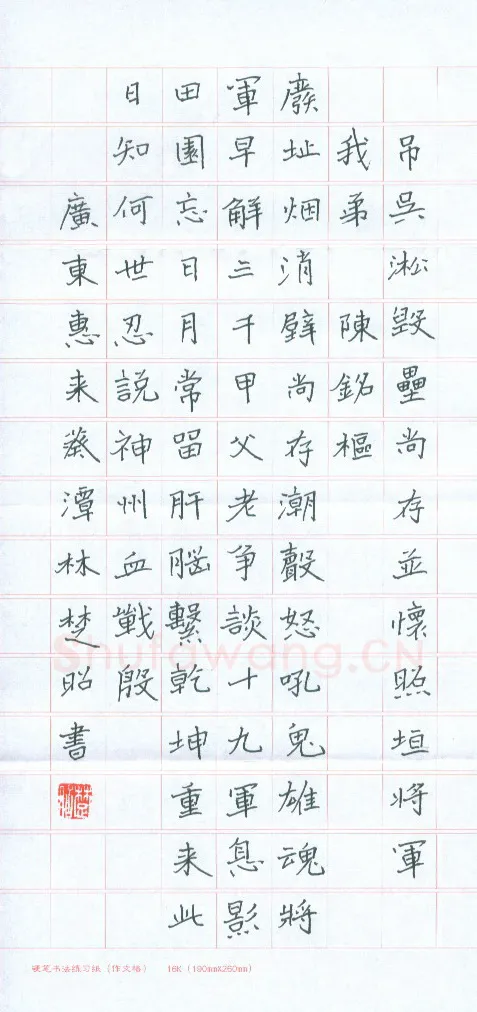 吊吳淞毀壘尚存並懷照垣將軍
我弟 陳銘樞
廢址烟消壁尚存潮聲怒吼鬼雄魂將
軍早解三千甲父老爭談十九軍息影
田園忘日月常留肝腦繫乾坤重来此
日知何世忍說神州血戰殷
廣東惠来蔡潭林楚昭書
硬笔书法练习纸（作文格） 16K（190mmX260mm）
Shufawang.CN